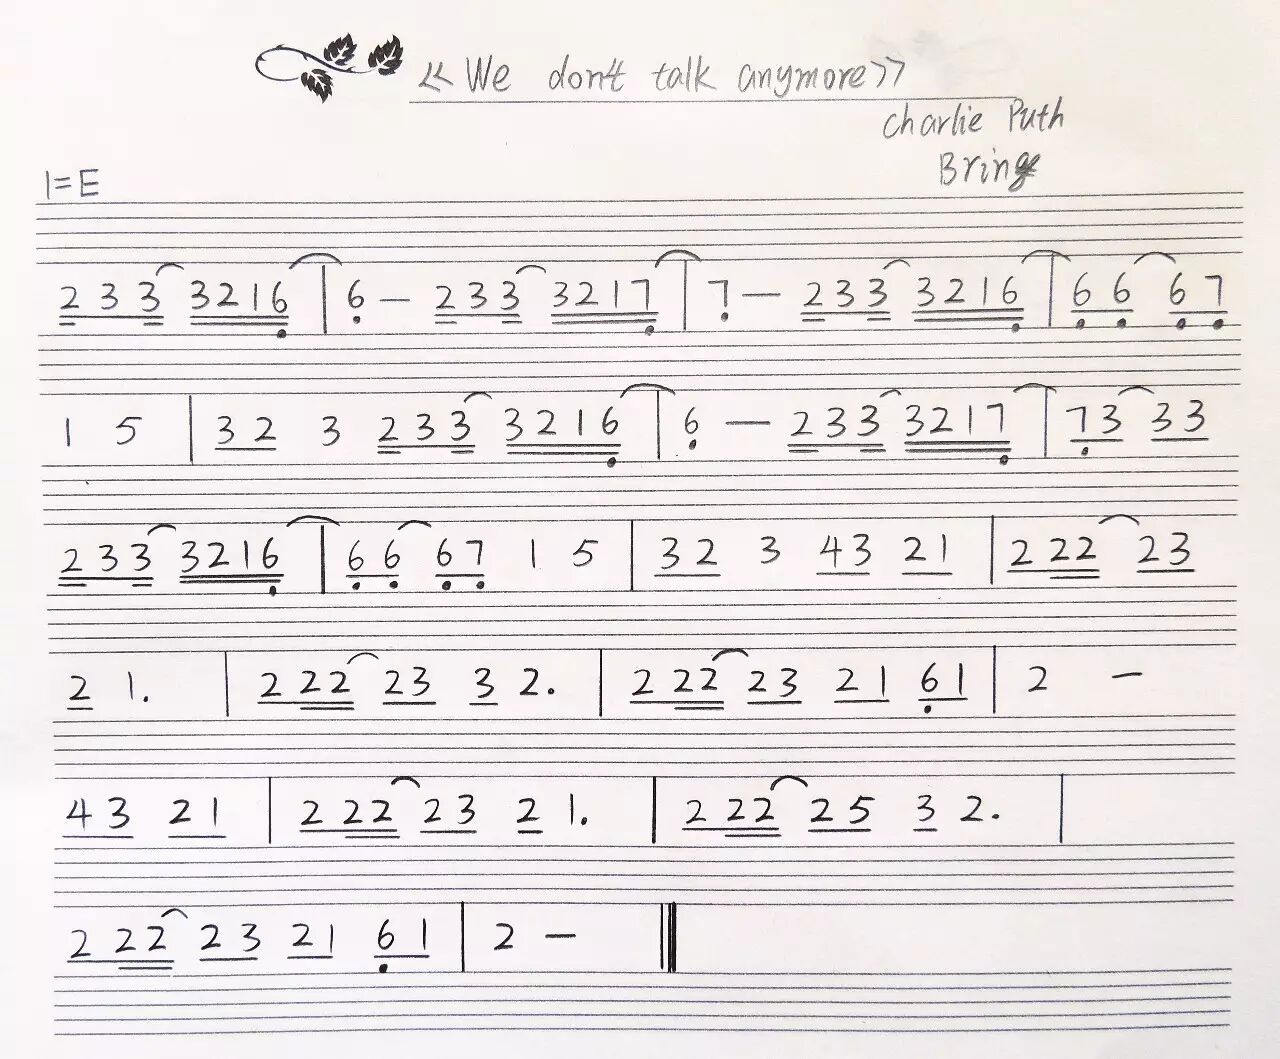 <<We don't talk anymore>>
Charlie Puth
Bring
1=E
2 3 3 3 2 1 6 | 6 — 2 3 3 3 2 1 7 | 7 — 2 3 3 3 2 1 6 | 6 6 6 7
1 5 | 3 2 3 2 3 3 3 2 1 6 | 6 — 2 3 3 3 2 1 7 | 7 3 3 3
2 3 3 3 2 1 6 | 6 6 6 7 1 5 | 3 2 3 4 3 2 1 | 2 2 2 2 3
2 1. | 2 2 2 2 3 3 2. | 2 2 2 2 3 2 1 6 1 | 2 —
4 3 2 1 | 2 2 2 2 3 2 1. | 2 2 2 2 5 3 2. |
2 2 2 2 3 2 1 6 1 | 2 — ||